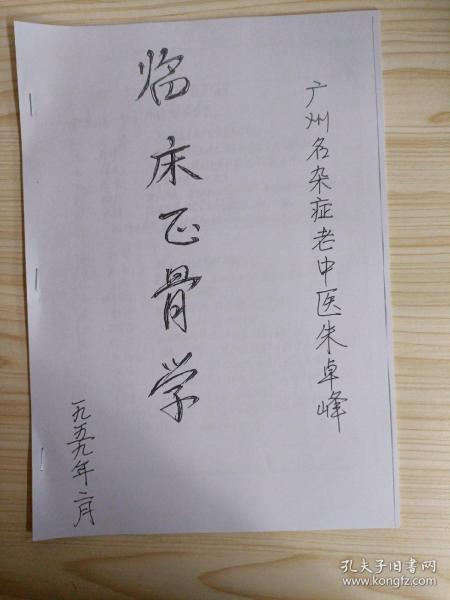 广州名杂症老中医朱卓峰
临床正骨学
一九五九年二月
孔夫子旧书网
www.kongfz.com